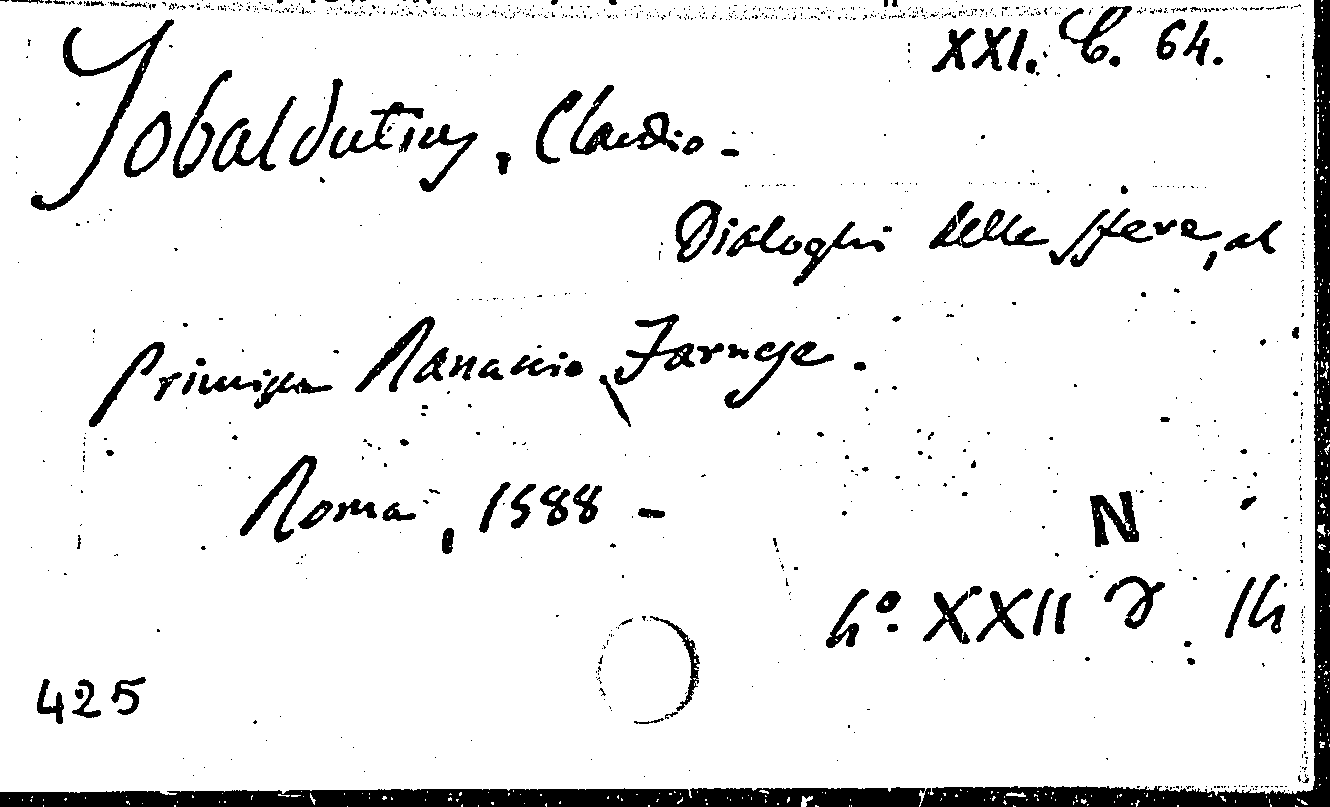 XXI. C. 64.
Tobaldutius, Claudio -
Dialoghi della sfera, al
Principe Ranuccio Farnese.
Roma, 1588 -
N
4º. XXII 14
425